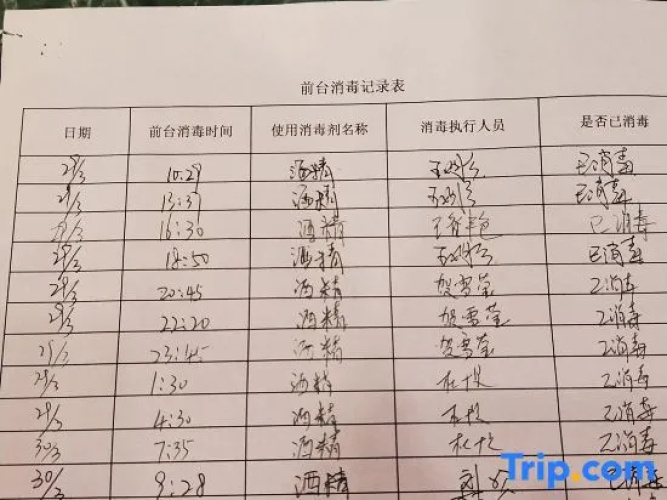 前台消毒记录表
日期 前台消毒时间 使用消毒剂名称 消毒执行人员 是否已消毒
29/3 10:29 酒精 已消毒
29/3 13:37 酒精 已消毒
29/3 16:30 酒精 已消毒
29/3 18:50 酒精 已消毒
29/3 20:45 酒精 贺雪莹 已消毒
29/3 22:20 酒精 贺雪莹 已消毒
29/3 23:45 酒精 贺雪莹 已消毒
29/3 1:30 酒精 已消毒
29/3 4:30 酒精 已消毒
30/3 7:35 酒精 已消毒
30/3 9:28 酒精 刘 已消毒
Trip.com